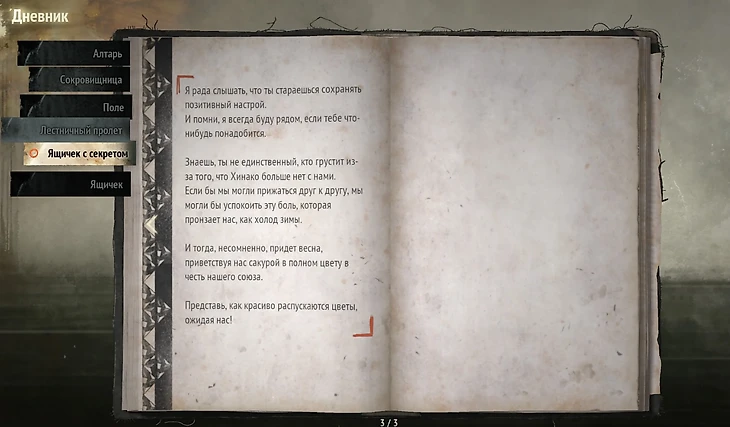 Дневник
Алтарь
Сокровищница
Поле
Лестничный пролет
Ящичек с секретом
Ящичек
Я рада слышать, что ты стараешься сохранять
позитивный настрой.
И помни, я всегда буду рядом, если тебе что-
нибудь понадобится.
Знаешь, ты не единственный, кто грустит из-
за того, что Хинако больше нет с нами.
Если бы мы могли прижаться друг к другу, мы
могли бы успокоить эту боль, которая
пронзает нас, как холод зимы.
И тогда, несомненно, придет весна,
приветствуя нас сакурой в полном цвету в
честь нашего союза.
Представь, как красиво распускаются цветы,
ожидая нас!
3 / 3